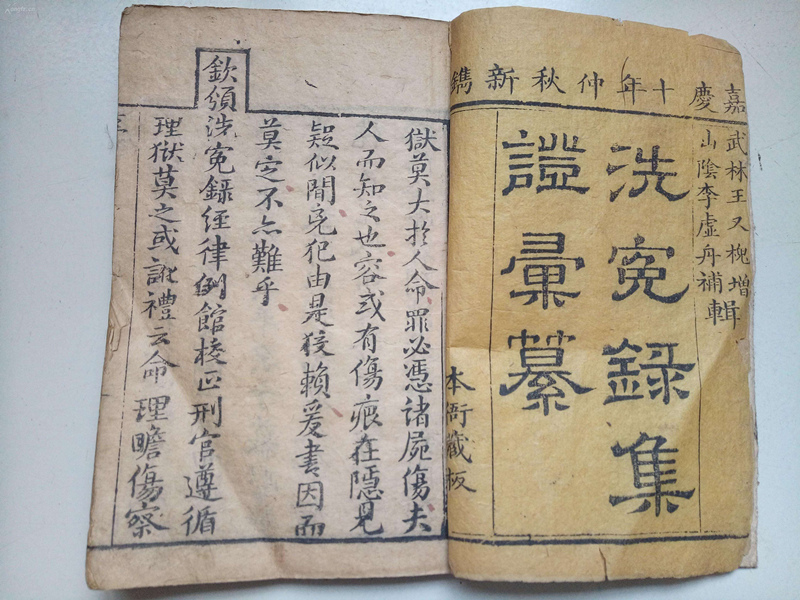 嘉慶十年仲秋新鐫
武林王又槐增輯
山陰李虛舟補輯
洗寃錄集
證彙纂
本衙藏板
獄莫大於人命罪必憑諸屍傷夫
人而知之也容或有傷痕在隱見
疑似間兇犯由是狡賴爰書因而
莫定不亦難乎
欽頒洗寃錄經律例館校正刑官遵循
理獄莫之或訛禮云命理瞻傷察